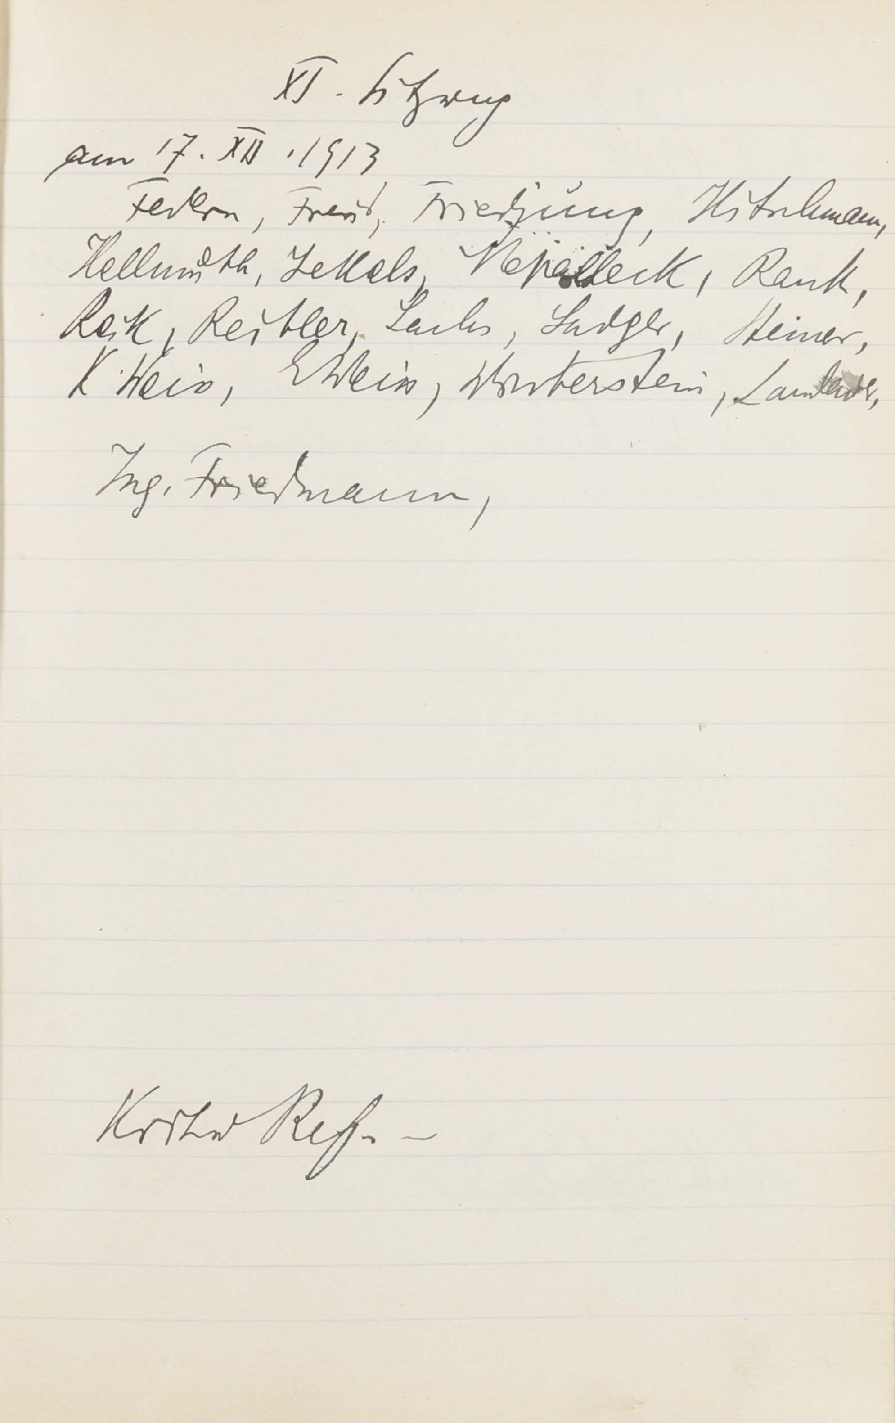 XI. Sitzung
am 17. XII. 1913
Federn, Freud, Friedjung, Hitschmann,
Hellmuth, Jekels, Nepalleck, Rank,
Reik, Reitler, Sachs, Sadger, Steiner,
K Weiss, E Weiss, Winterstein, Landauer,
Ing. Friedmann,